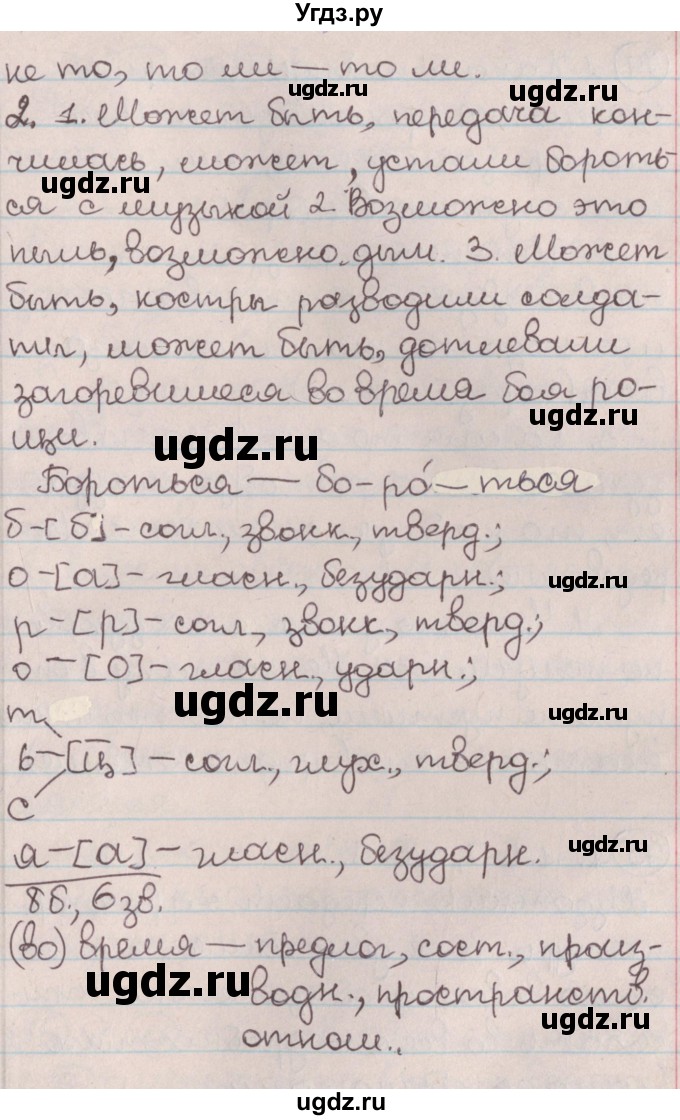 Угдз.ру
не то, то ли — то ли.
2. 1. Может быть, передача кон-
чилась, может, устали бороть-
ся с музыкой 2. Возможно это
пыль, возможно дым. 3. Может
быть, костры разводили солда-
ты, может быть, дотлевали
загоревшиеся во время боя ро-
щи.
Бороться — бо-ро́-ться
б-[б]-согл., звонк., тверд.;
о-[а]-гласн., безударн.;
р-[р]-согл., звонк., тверд.;
о-[о]-гласн., ударн.;
т
ь-[ц̅]-согл., глух., тверд.;
с
я-[а]-гласн., безударн.
8б., 6зв.
(во) время — предлог, сост., произ-
водн., пространств.
отнош..
ugdz.ru
ugdz.ru
ugdz.ru
ugdz.ru
ugdz.ru
ugdz.ru
ugdz.ru
ugdz.ru
ugdz.ru
ugdz.ru
ugdz.ru
ugdz.ru
ugdz.ru